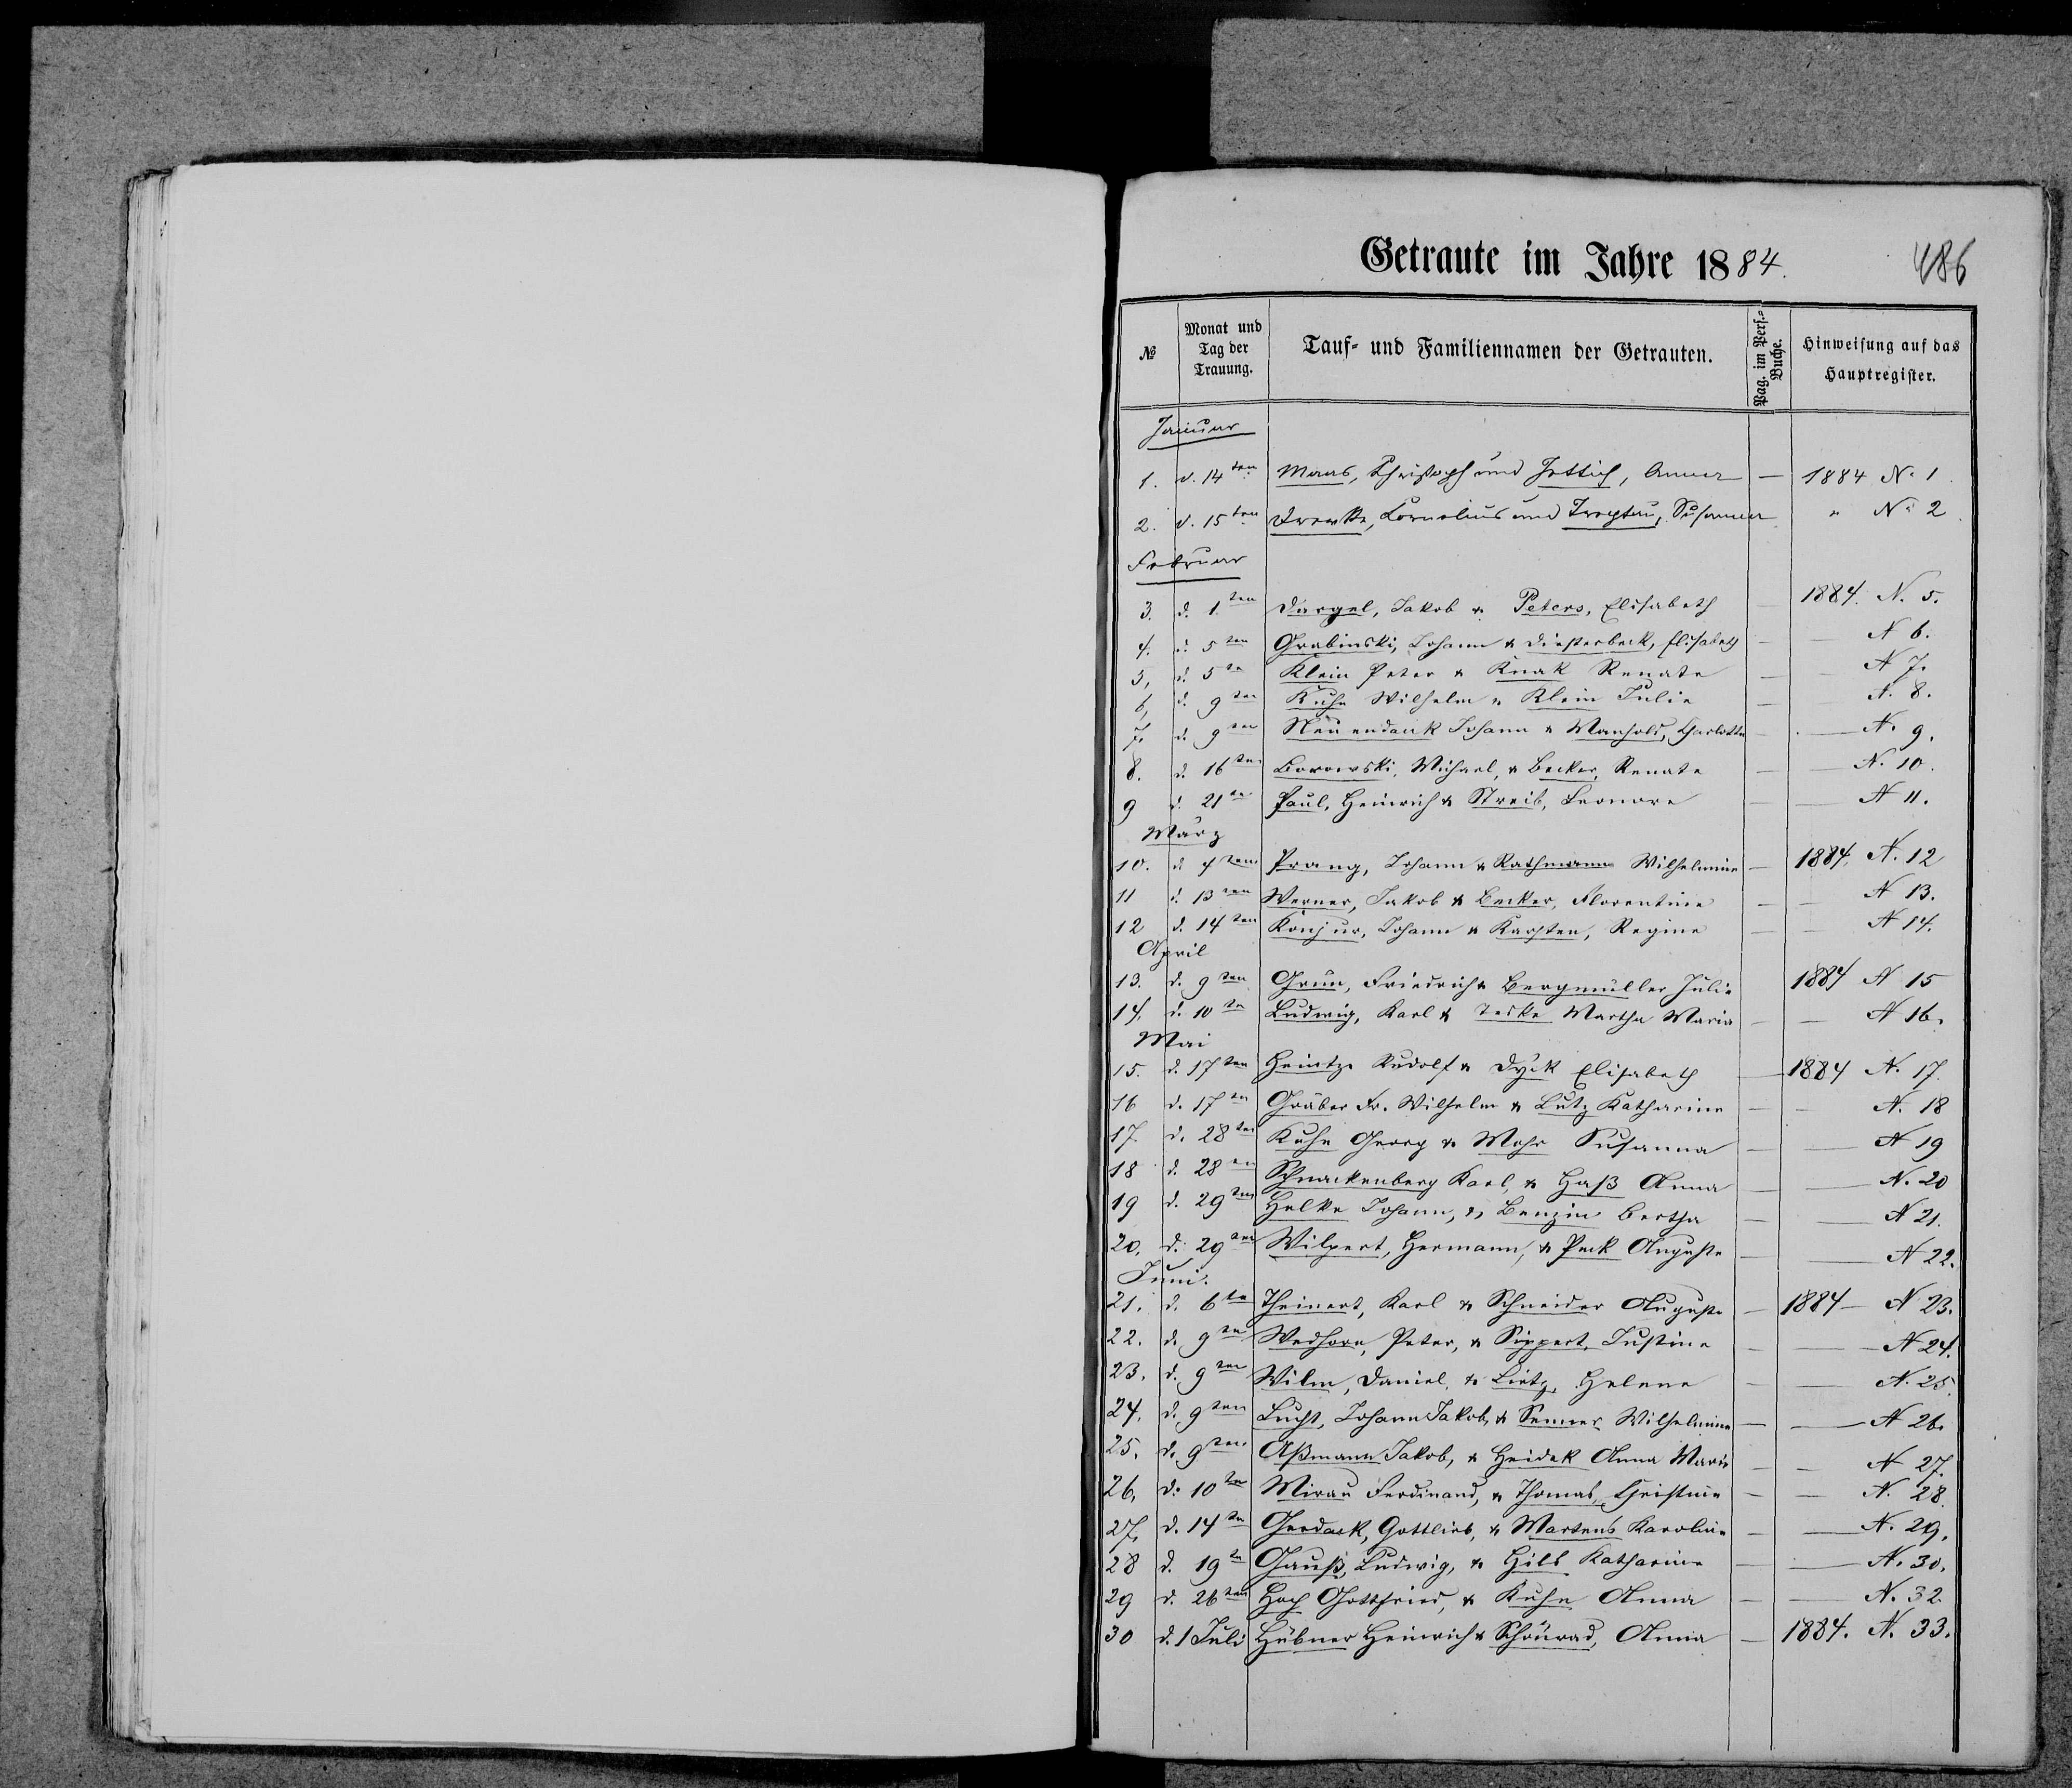 Getraute im Jahre 1884.
486
№ Monat und Tag der Trauung. Tauf- und Familiennamen der Getrauten. Pag. im Pers.-Buche. Hinweisung auf das Hauptregister.
Januar
1. d. 14ten Maas, Christoph und Jottich, Anna — 1884 No 1.
2. d. 15ten Drewske, Cornelius und Treptau, Susanna " No 2.
Februar
3. d. 1.ten Dargel, Jakob & Peters, Elisabeth 1884. N. 5.
4. d. 5ten Grabinski, Johann & Diesterbeck, Elisabeth — N 6.
5, d. 5te Klein Peter & Knak Renate — N 7.
6, d. 9ten Kuhn Wilhelm & Klein Julie — N. 8.
7. d. 9ten Neuendank Johann & Manhold, Charlotte — N. 9.
8. d. 16ten Borowski, Michael, & Becker, Renate — N. 10.
9 d. 21te Paul, Heinrich & Streib, Leonore — N 11.
März
10. d. 4ten Prang, Johann & Rathmann Wilhelmine — 1884. N. 12
11 d. 13ten Werner, Jakob & Becker, Florentine — N 13.
12 d. 14ten Konjur, Johann & Karsten, Regine — N 14.
April
13. d. 9ten Grün, Friedrich & Bergmüller Julie 1884 N 15
14. d. 10te Ludwig, Karl & Teske Martha Maria — N 16.
Mai
15. d. 17ten Heintze Rudolf & Dyck Elisabeth — 1884 N. 17.
16 d. 17ten Gräber Fr. Wilhelm & Lutz Katharine — N. 18
17. d. 28ten Kuhn Georg & Mohr Susanna — N 19
18 d. 28en Schnackenberg Karl, & Haß Anna — N. 20
19 d. 29ten Helke Johann, & Benzin Bertha — N 21.
20. d. 29ten Wilpert, Hermann, & Peck Auguste — N 22.
Juni.
21. d. 6te Theinert, Karl & Schneider Auguste — 1884 — N 23.
22. d. 9te Wedhorn, Peter, & Sippert, Justine — N 24.
23. d. 9ten Wilm, Daniel, & Lietz, Helene — N. 25.
24. d. 9ten Lucht, Johann Jakob, & Senner Wilhelmine — N 26.
25. d. 9ten Aßmann Jakob, & Heidek Anna Marie — N 27.
26. d. 10te Mirau Ferdinand, & Thomas, Christine — N. 28.
27, d. 14te Gerdack, Gottlieb, & Martens Karoline — N. 29.
28 d. 19te Gauß, Ludwig, & Hild Katharine — N. 30.
29 d. 26ten Hoch Gottfried, & Kuhn Anna — N. 32.
30 d. 1 Juli Hübner Heinrich & Schönrad, Anna — 1884. N. 33.